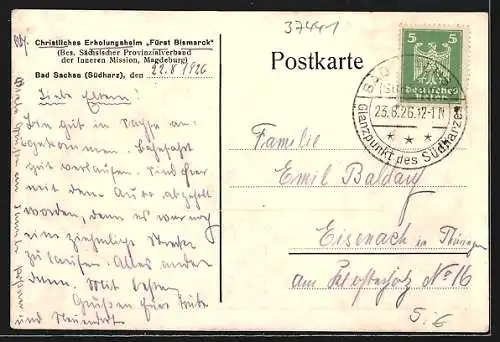 37441
Christliches Erholungsheim „Fürst Bismarck"
(Bes. Sächsischer Provinzialverband
der Inneren Mission, Magdeburg)
Bad Sachsa (Südharz), den 22.8 1926
Liebe Eltern!
Bin gut in Sachsa an-
gekommen. Bahnfahrt
gut verlaufen. Sind hier
mit dem Auto abgeholt
worden, denn es war noch
eine ziemliche Strecke
zu laufen. Alles andere
dann. Mit besten
Grüßen für heute
und
Postkarte
5 5
Deutsches Reich
BAD
(Süd
23.8.26.12-1N
Glanzpunkt des Südharzes
Familie
Emil Baldauf
Eisenach in Thüringen
am Klosterholz No 16